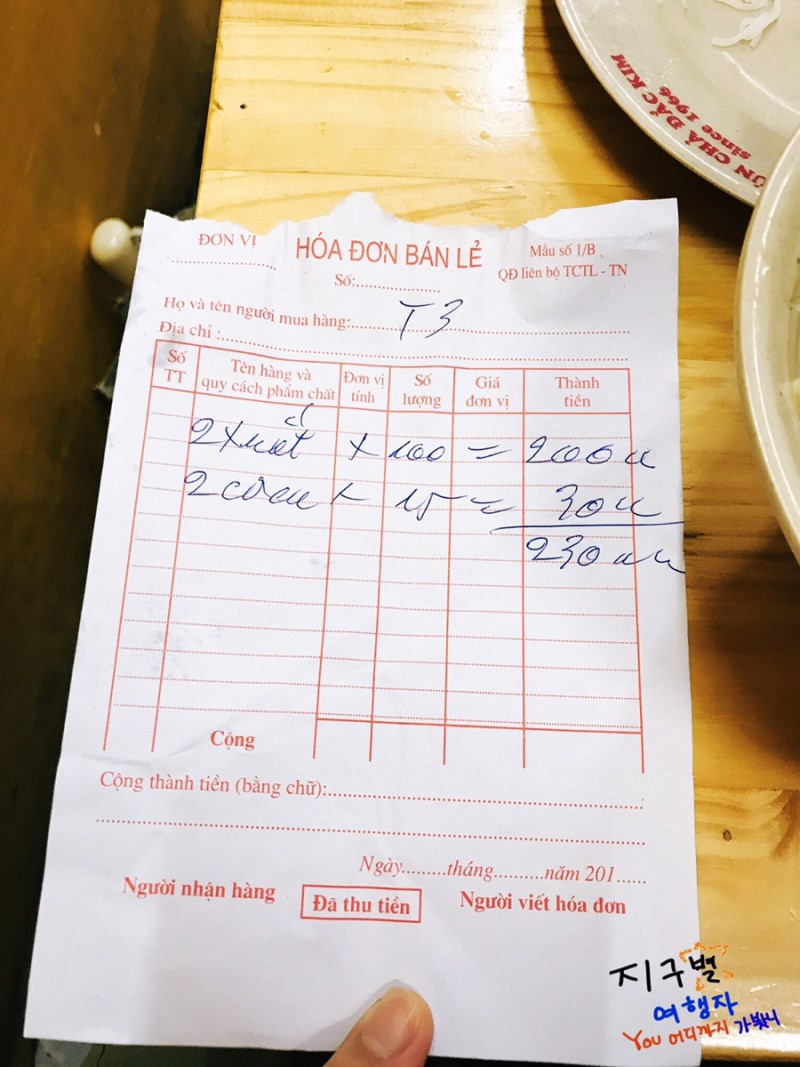 ÚN CHẢ ĐẮC KIM
since 1966
ĐƠN VỊ
HÓA ĐƠN BÁN LẺ
Mẫu số 1/B
QĐ liên bộ TCTL - TN
Số:
Họ và tên người mua hàng: T3
Địa chỉ :
Số TT Tên hàng và quy cách phẩm chất Đơn vị tính Số lượng Giá đơn vị Thành tiền
2 xuất x 100 = 200
2 x 15 = 30
230
Cộng
Cộng thành tiền (bằng chữ):
Ngày.........tháng..........năm 201......
Người nhận hàng
Đã thu tiền
Người viết hóa đơn
지구별
여행자
You 어디까지 가봤니